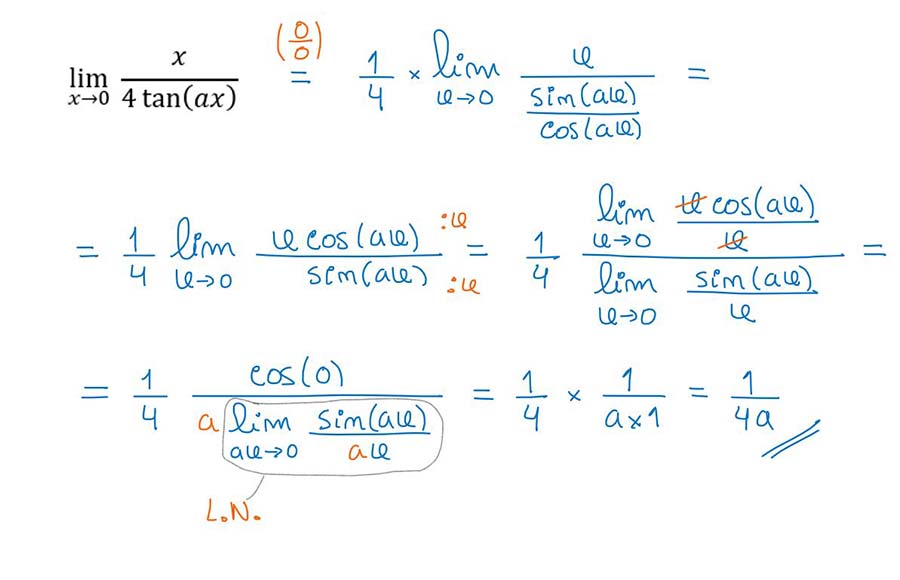 lim x→0 x / 4 tan(ax) (0/0) = 1/4 × lim x→0 x / (sin(ax) / cos(ax)) =
= 1/4 lim x→0 x cos(ax) :x / sin(ax) :x = 1/4 (lim x→0 x cos(ax) / x) / (lim x→0 sin(ax) / x) =
= 1/4 cos(0) / (a lim ax→0 sin(ax) / ax) = 1/4 × 1 / a×1 = 1 / 4a
L.N.